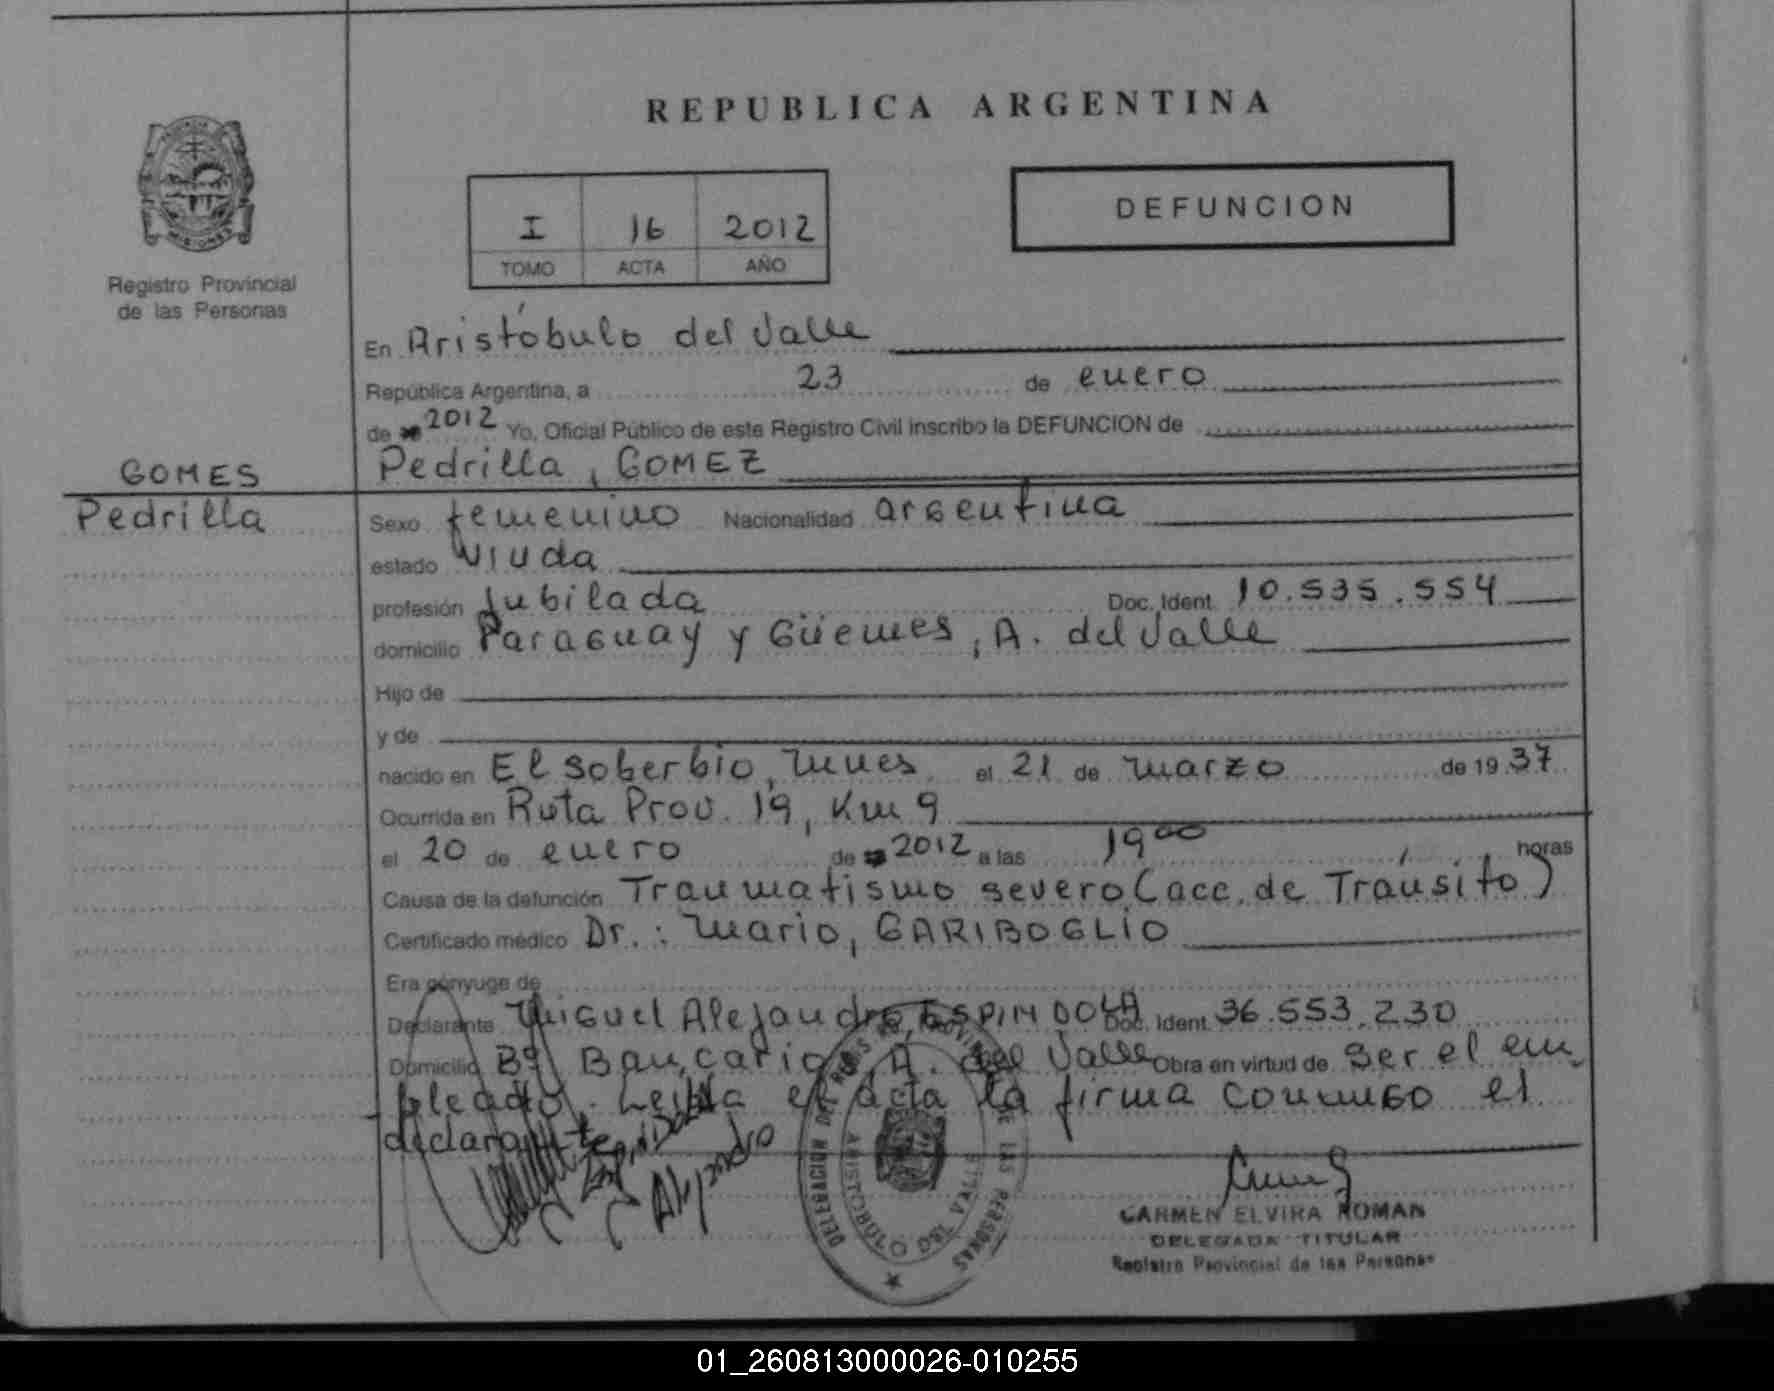 REPUBLICA ARGENTINA
MISIONES
Registro Provincial
de las Personas
I 16 2012
TOMO ACTA AÑO
DEFUNCION
En Aristóbulo del Valle
República Argentina, a 23 de enero
de 2012 Yo, Oficial Público de este Registro Civil inscribo la DEFUNCION de
GOMES
Pedrilla
Pedrilla, GOMEZ
Sexo femenino Nacionalidad argentina
estado viuda
profesión Jubilada Doc. Ident. 10.535.554
domicilio Paraguay y Güemes, A. del Valle
Hijo de
y de
nacido en El Soberbio, Mnes el 21 de marzo de 19 37
Ocurrida en Ruta Prov. 19, Km 9
el 20 de enero de 2012 a las 19 00 horas
Causa de la defunción Traumatismo severo (acc. de Tránsito)
Certificado médico Dr.: Mario, GARIBOGLIO
Era cónyuge de
Declarante Miguel Alejandro ESPINDOLA Doc. Ident. 36.553.230
Domicilio Bº Bancario, A. del Valle Obra en virtud de ser el em
pleado. Leída el acta la firma conmigo el
declarante
Espindola
Alejandro
DELEGACION DEL REGISTRO PROVINCIAL DE LAS PERSONAS
ARISTOBULO DEL VALLE
CARMEN ELVIRA ROMAN
DELEGADA TITULAR
Registro Provincial de las Personas
01_260813000026-010255